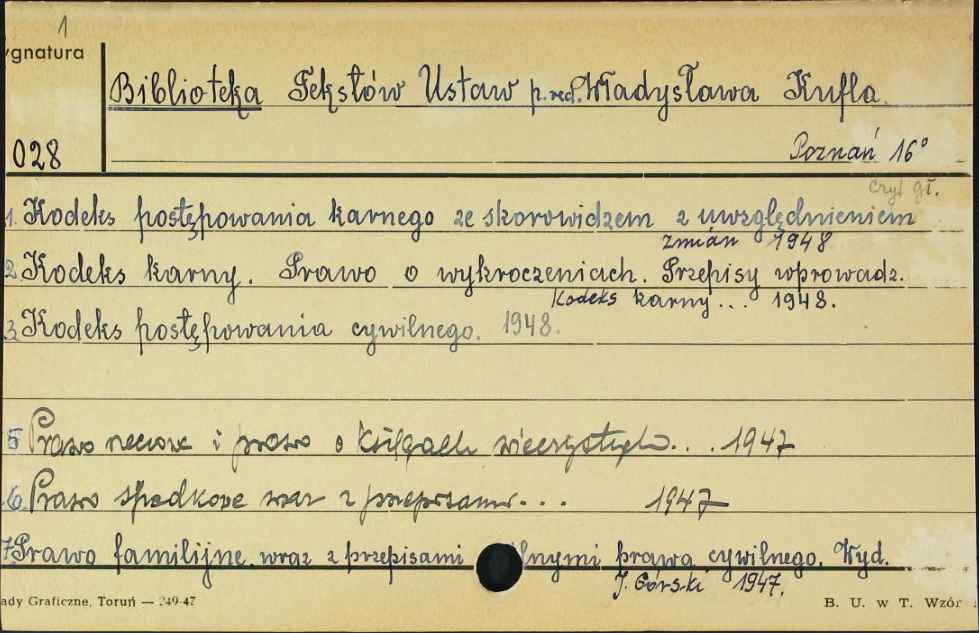 1
ygnatura
Biblioteka Tekstów Ustaw p. red. Władysława Kufla.
028
Poznań 16°
Czyt gł.
1. Kodeks postępowania karnego ze skorowidzem z uwzględnieniem
zmian 1948
2. Kodeks karny. Prawo o wykroczeniach. Przepisy wprowadz.
Kodeks karny... 1948.
3. Kodeks postępowania cywilnego. 1948.
5 Prawo rzeczowe i prawo o księgach wieczystych... 1947
6. Prawo spadkowe wraz z przepisami... 1947
7. Prawo familijne wraz z przepisami ólnymi prawa cywilnego. Wyd.
J. Górski 1947.
ady Graficzne, Toruń — 249-47
B. U. w T. Wzór